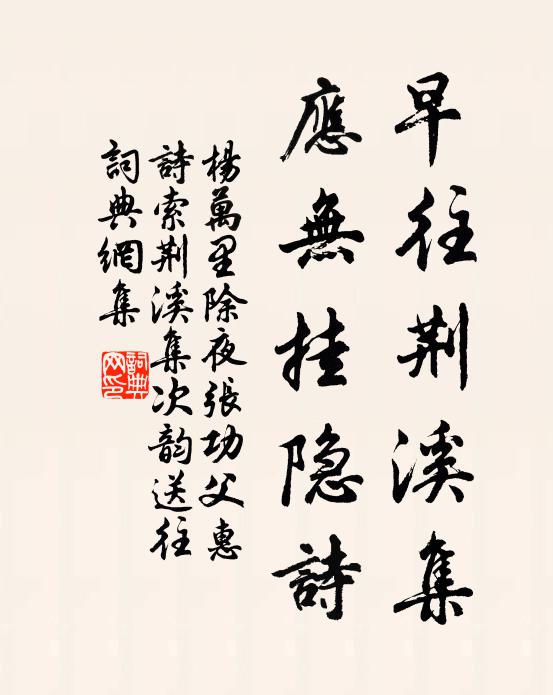 早往荆溪集
應無挂隐詩
楊萬里除夜張功父惠
詩索荆溪集次韵送往
詞典網集
詞典網印